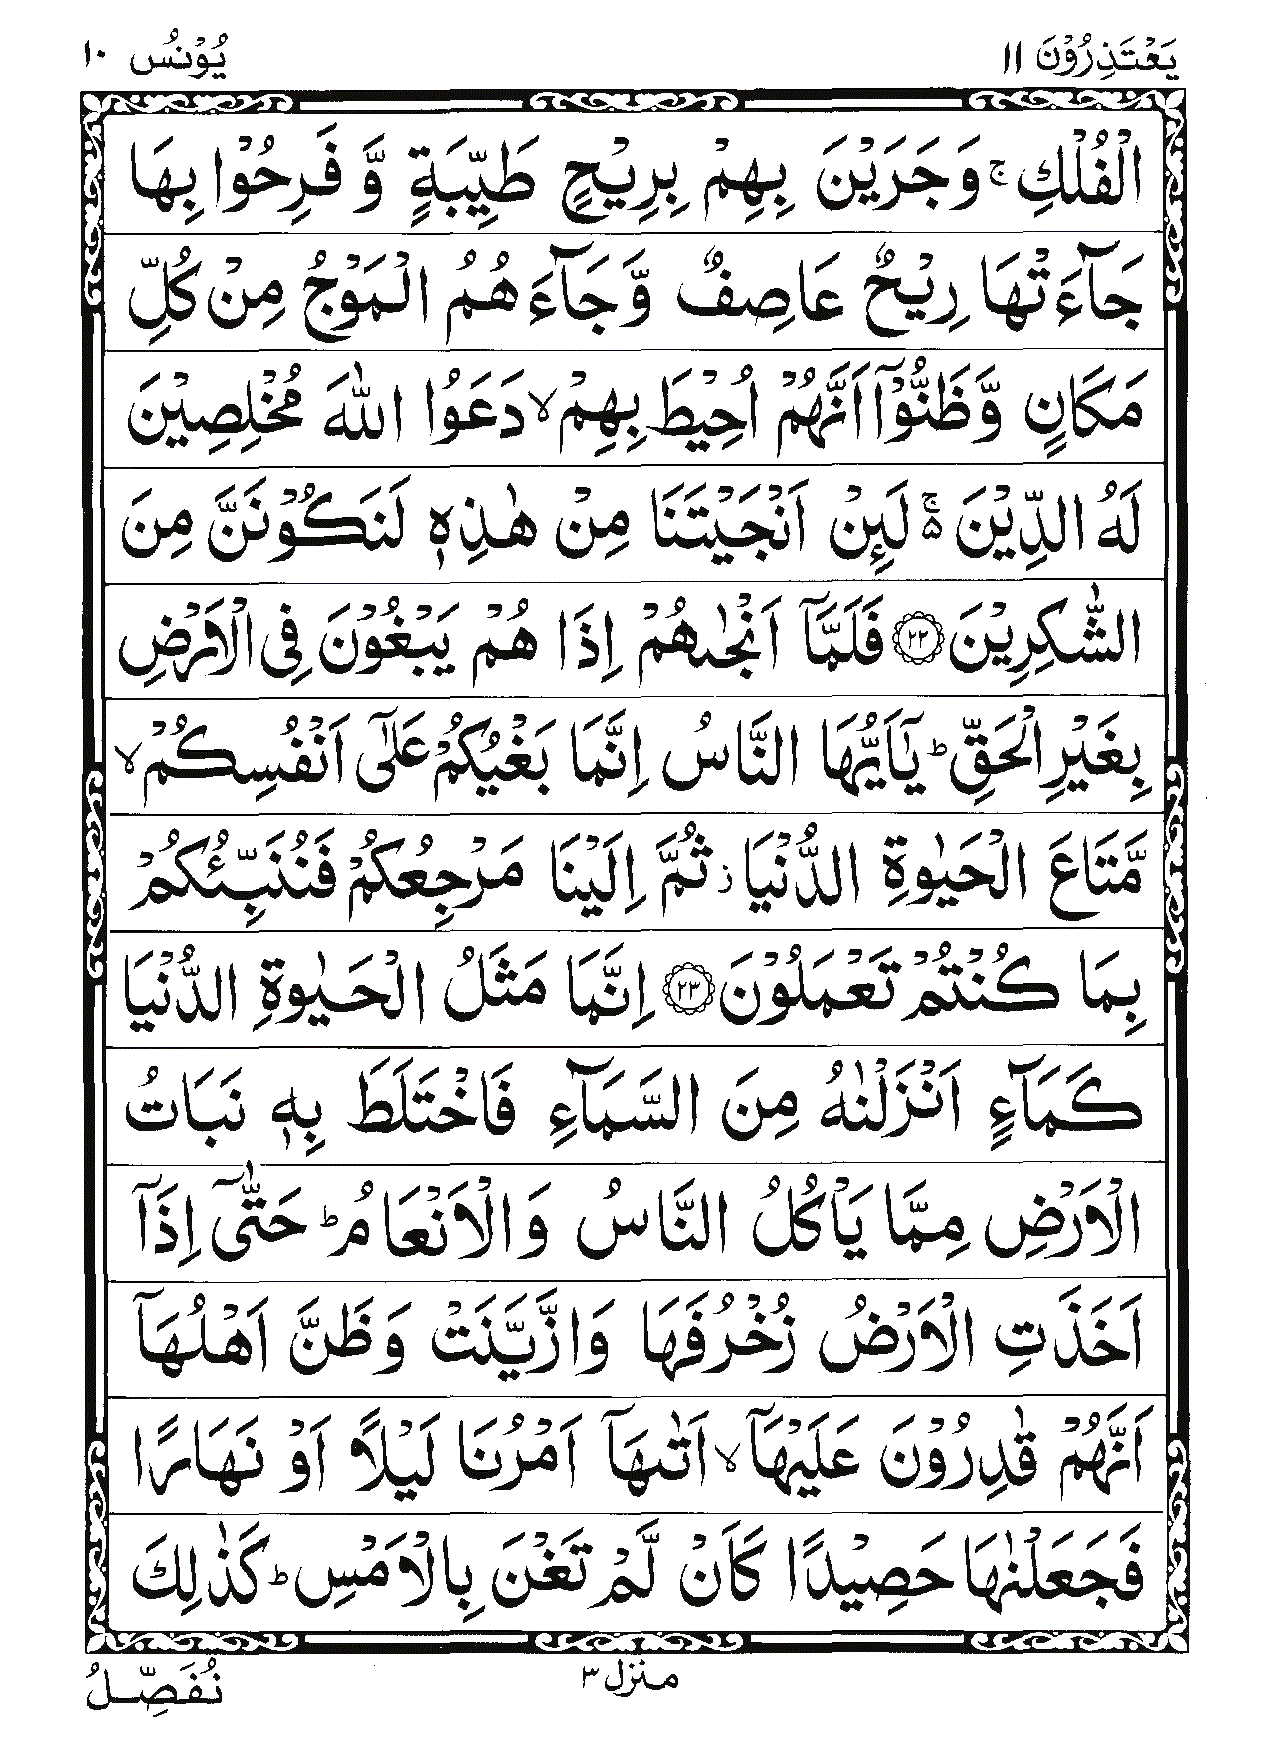 يَعْتَذِرُوْنَ ۱۱ يُوْنُسُ ۱۰
الْفُلْكِ ۚ وَجَرَيْنَ بِهِمْ بِرِيْحٍ طَيِّبَةٍ وَّ فَرِحُوْا بِهَا
جَآءَتْهَا رِيْحٌ عَاصِفٌ وَّجَآءَ هُمُ الْمَوْجُ مِنْ كُلِّ
مَكَانٍ وَّظَنُّوْٓا اَنَّهُمْ اُحِيْطَ بِهِمْ ۙ دَعَوُا اللّٰهَ مُخْلِصِيْنَ
لَهُ الدِّيْنَ ۚ۵ لَىِٕنْ اَنْجَيْتَنَا مِنْ هٰذِهٖ لَنَكُوْنَنَّ مِنَ
الشّٰكِرِيْنَ ﴿۲۲﴾ فَلَمَّآ اَنْجٰىهُمْ اِذَا هُمْ يَبْغُوْنَ فِى الْاَرْضِ
بِغَيْرِ الْحَقِّ ؕ يٰٓاَيُّهَا النَّاسُ اِنَّمَا بَغْيُكُمْ عَلٰٓى اَنْفُسِكُمْ ۙ
مَّتَاعَ الْحَيٰوةِ الدُّنْيَا ز ثُمَّ اِلَيْنَا مَرْجِعُكُمْ فَنُنَبِّئُكُمْ
بِمَا كُنْتُمْ تَعْمَلُوْنَ ﴿۲۳﴾ اِنَّمَا مَثَلُ الْحَيٰوةِ الدُّنْيَا
كَمَآءٍ اَنْزَلْنٰهُ مِنَ السَّمَآءِ فَاخْتَلَطَ بِهٖ نَبَاتُ
الْاَرْضِ مِمَّا يَاْكُلُ النَّاسُ وَالْاَنْعَامُ ؕ حَتّٰٓى اِذَآ
اَخَذَتِ الْاَرْضُ زُخْرُفَهَا وَازَّيَّنَتْ وَظَنَّ اَهْلُهَآ
اَنَّهُمْ قٰدِرُوْنَ عَلَيْهَآ ۙ اَتٰىهَآ اَمْرُنَا لَيْلًا اَوْ نَهَارًا
فَجَعَلْنٰهَا حَصِيْدًا كَاَنْ لَّمْ تَغْنَ بِالْاَمْسِ ؕ كَذٰلِكَ
منزل ۳
نُفَصِّلُ